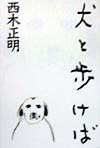 犬と歩けば
西木正明